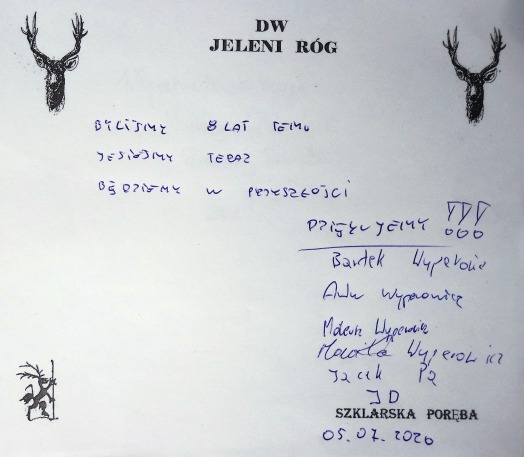 DW
JELENI RÓG
BYLIŚMY 8 LAT TEMU
JESTEŚMY TERAZ
BĘDZIEMY W PRZYSZŁOŚCI
DZIĘKUJEMY !!!
Bartek Wyperowicz
Wyperowicz
Mateusz Wyperowicz
Wyperowicz
Jacek
JD
SZKLARSKA PORĘBA
05.07.2020